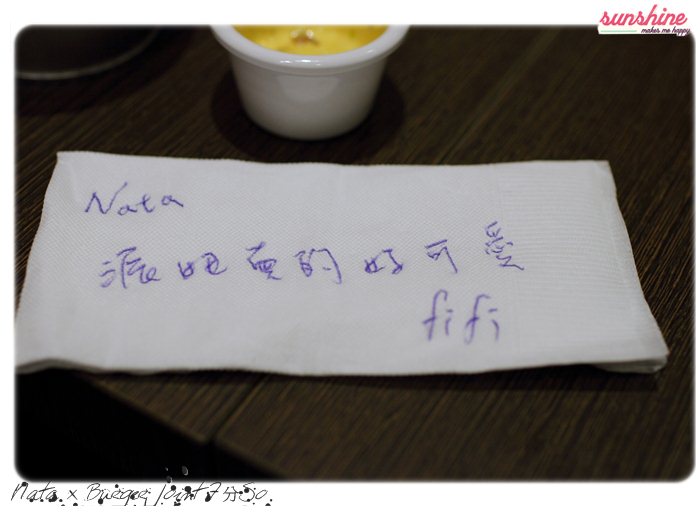 sunshine
makes me happy
Nata
真的好可愛
fifi
Nata x Burger Joint 7分So